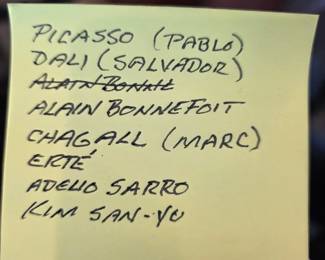 PICASSO (PABLO)
DALI (SALVADOR)
ALAIN BONNIE
ALAIN BONNEFOIT
CHAGALL (MARC)
ERTÉ
ADELIO SARRO
KIM SAN-YU